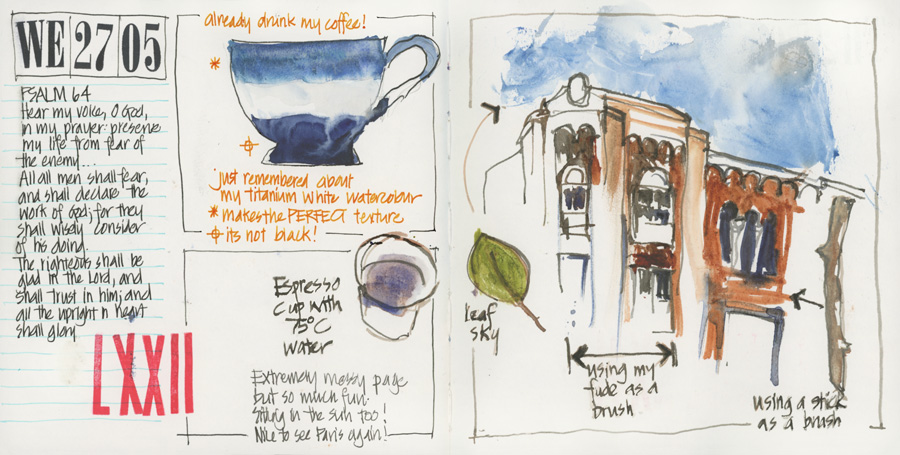 WE 27 05
PSALM 64
Hear my voice, O God,
in my prayer: preserve
my life from fear of
the enemy...
All all men shall fear,
and shall declare the
work of God; for they
shall wisely consider
of his doing.
The righteous shall be
glad in the Lord, and
shall trust in him; and
all the upright in heart
shall glory
LXXII
already drunk my coffee!
just remembered about
my titanium white watercolour
* makes the PERFECT texture
its not black!
Espresso
cup with
75°C
water
Extremely messy page
but so much fun.
Sitting in the sun too!
Nice to see Paris again!
leaf
sky
using my
fude as a
brush
using a stick
as a brush